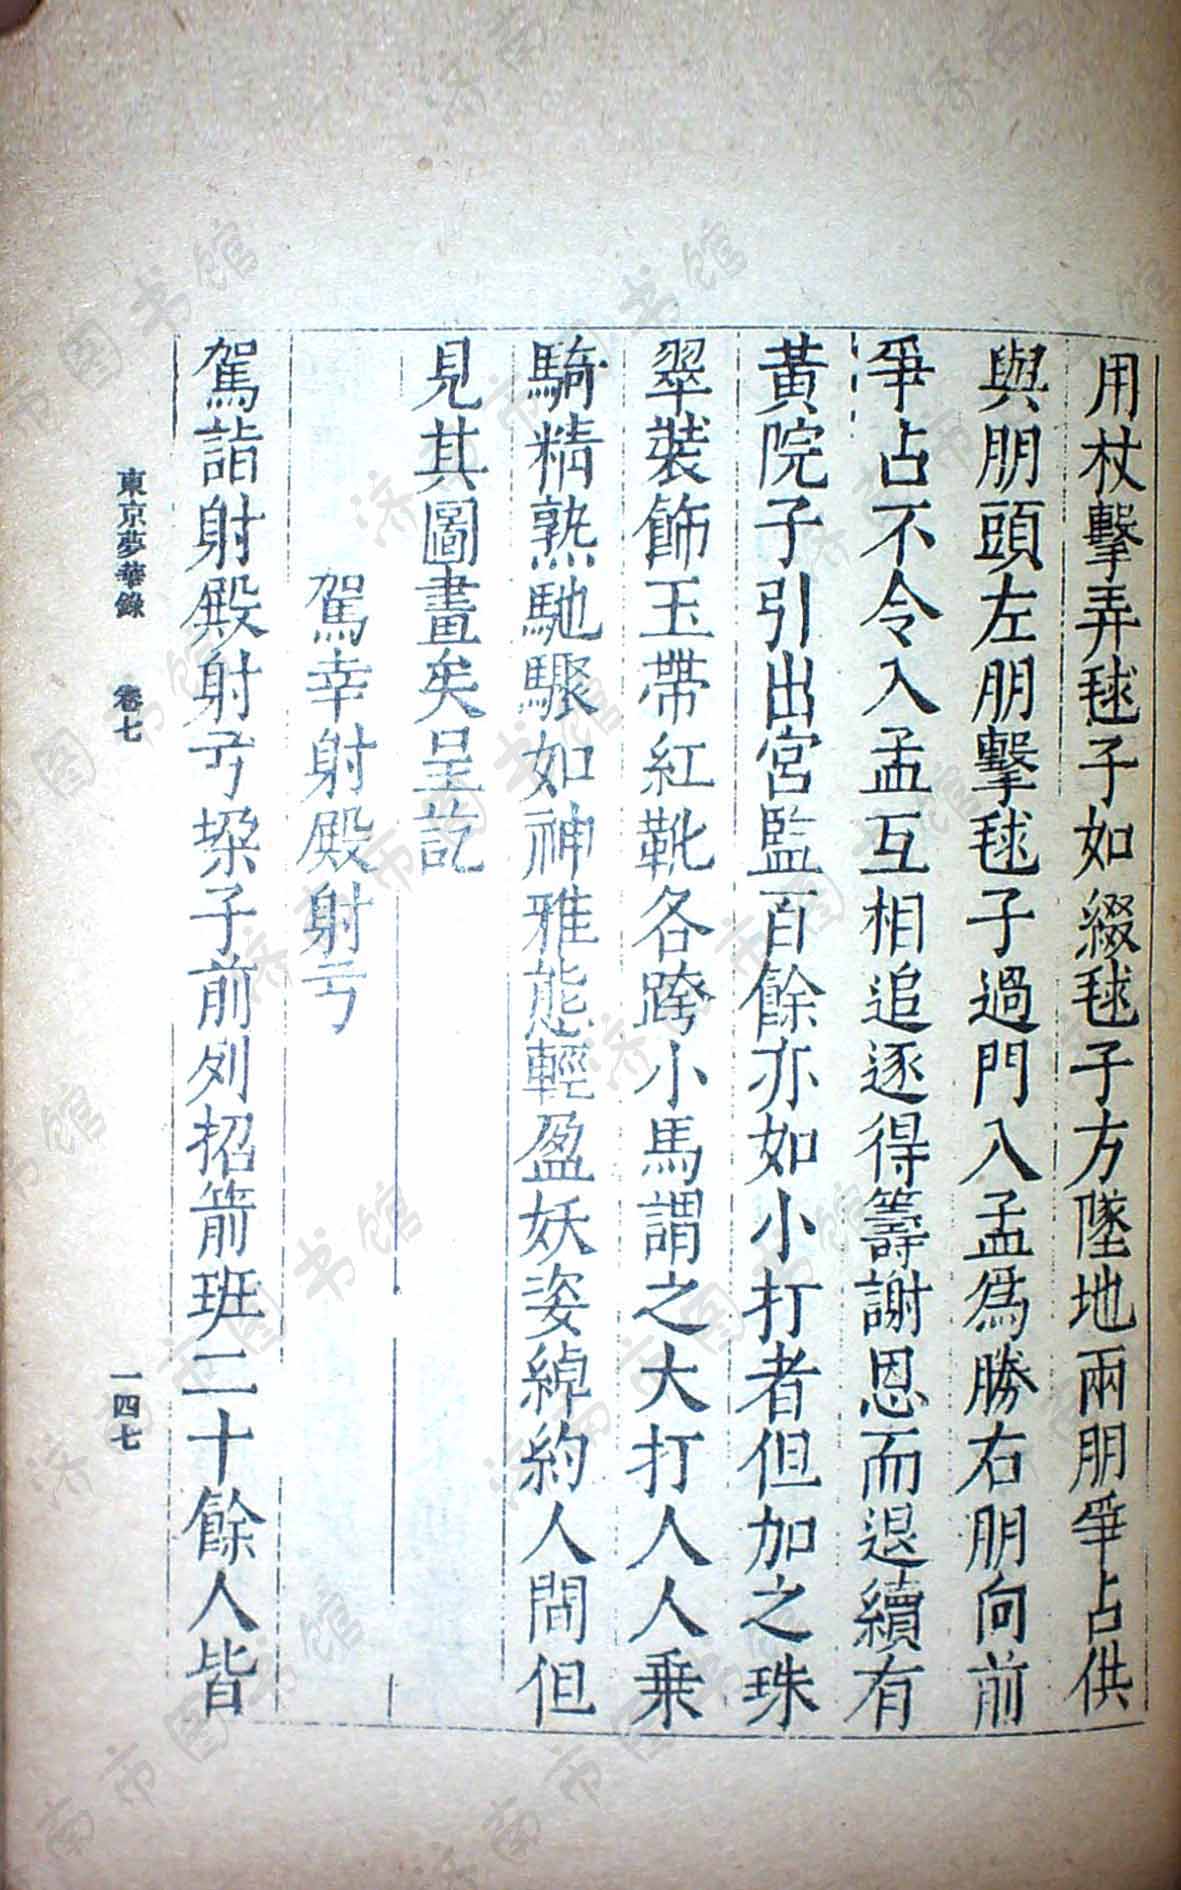 用杖擊弄毬子如綴毬子方墜地兩朋爭占供
與朋頭左朋擊毬子過門入孟爲勝右朋向前
爭占不令入孟互相追逐得籌謝恩而退續有
黃院子引出宮監百餘亦如小打者但加之珠
翠裝飾玉帶紅靴各跨小馬謂之大打人人乗
騎精熟馳驟如神雅態輕盈妖姿綽約人間但
見其圖畫矣呈訖
駕幸射殿射弓
駕詣射殿射弓垜子前列招箭班二十餘人皆
東京夢華錄 卷七 一四七
济南市图书馆